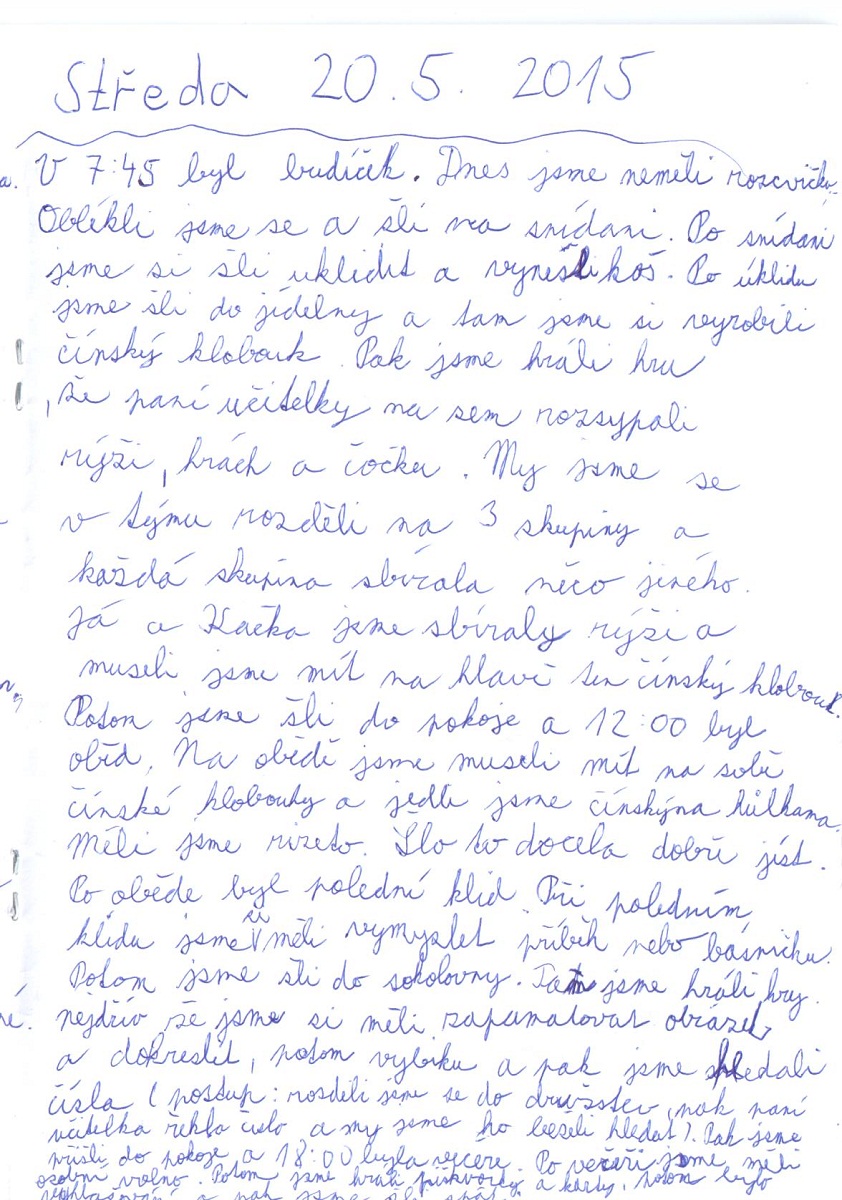 Středa 20.5. 2015
V 7:45 byl budíček. Dnes jsme neměli rozcvičku.
Oblékli jsme se a šli na snídani. Po snídani
jsme si šli uklidit a vynešli koš. Po úklidu
jsme šli do jídelny a tam jsme si vyrobili
čínský klobouk. Pak jsme hráli hru
, že paní učitelky na sem rozsypali
rýži, hrách a čočku. My jsme se
v týmu rozděli na 3 skupiny a
každá skupina sbírala něco jiného.
Já a Kačka jsme sbíraly rýži a
museli jsme mít na hlavě ten čínský klobouk.
Potom jsme šli do pokoje a 12:00 byl
oběd. Na obědě jsme museli mít na sobě
čínské klobouky a jedli jsme čínskýma hůlkama.
Měli jsme rizoto. Šlo to docela dobře jíst.
Po oběde byl polední klid. Při poledním
klidu jsme si měli vymyslet příběh nebo básničku.
Potom jsme šli do sokolovny. Tam jsme hráli hry.
nejdřív že jsme si měli zapamatovat obrázek
a dokreslit, potom vybiku a pak jsme hledali
čísla (postup: rosdeli jsme se do družstev, pak paní
učitelka řekla číslo a my jsme ho hledat). Pak jsme
přišli do pokoje a 18:00 byla večere. Po večeři jsme měli
osobní volno. Potom jsme hráli piškvorky a karty, potom bylo
a pak jsme šli spát.